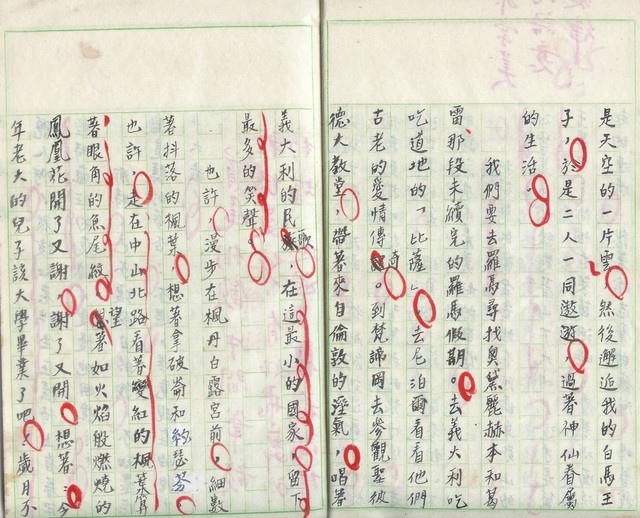 是天空的一片雲，然後邂逅我的白馬王
子，於是二人一同遨遊，過著神仙眷屬
的生活。
我們要去羅馬尋找奧黛麗赫本和葛
雷、那段未續完的羅馬假期。去義大利吃
吃道地的「比薩」，去尼泊爾看看他們
古老的愛情傳奇。到梵諦岡去參觀聖彼
德大教堂，帶著來自倫敦的溼氣，唱著
義大利的民歌，在這最小的國家，留下
最多的笑聲。
也許，漫步在楓丹白露宮前，細數
著抖落的楓葉，想著拿破崙和約瑟芬
也許，走在中山北路看著變紅的楓葉
著眼角的魚尾紋，望著如火焰般燃燒的
鳳凰花開了又謝，謝了又開，想著：今
年老大的兒子該大學畢業了吧，歲月不